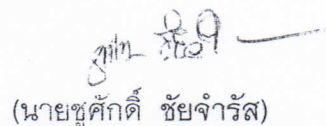 (นายชูศักดิ์ ชัยจำรัส)